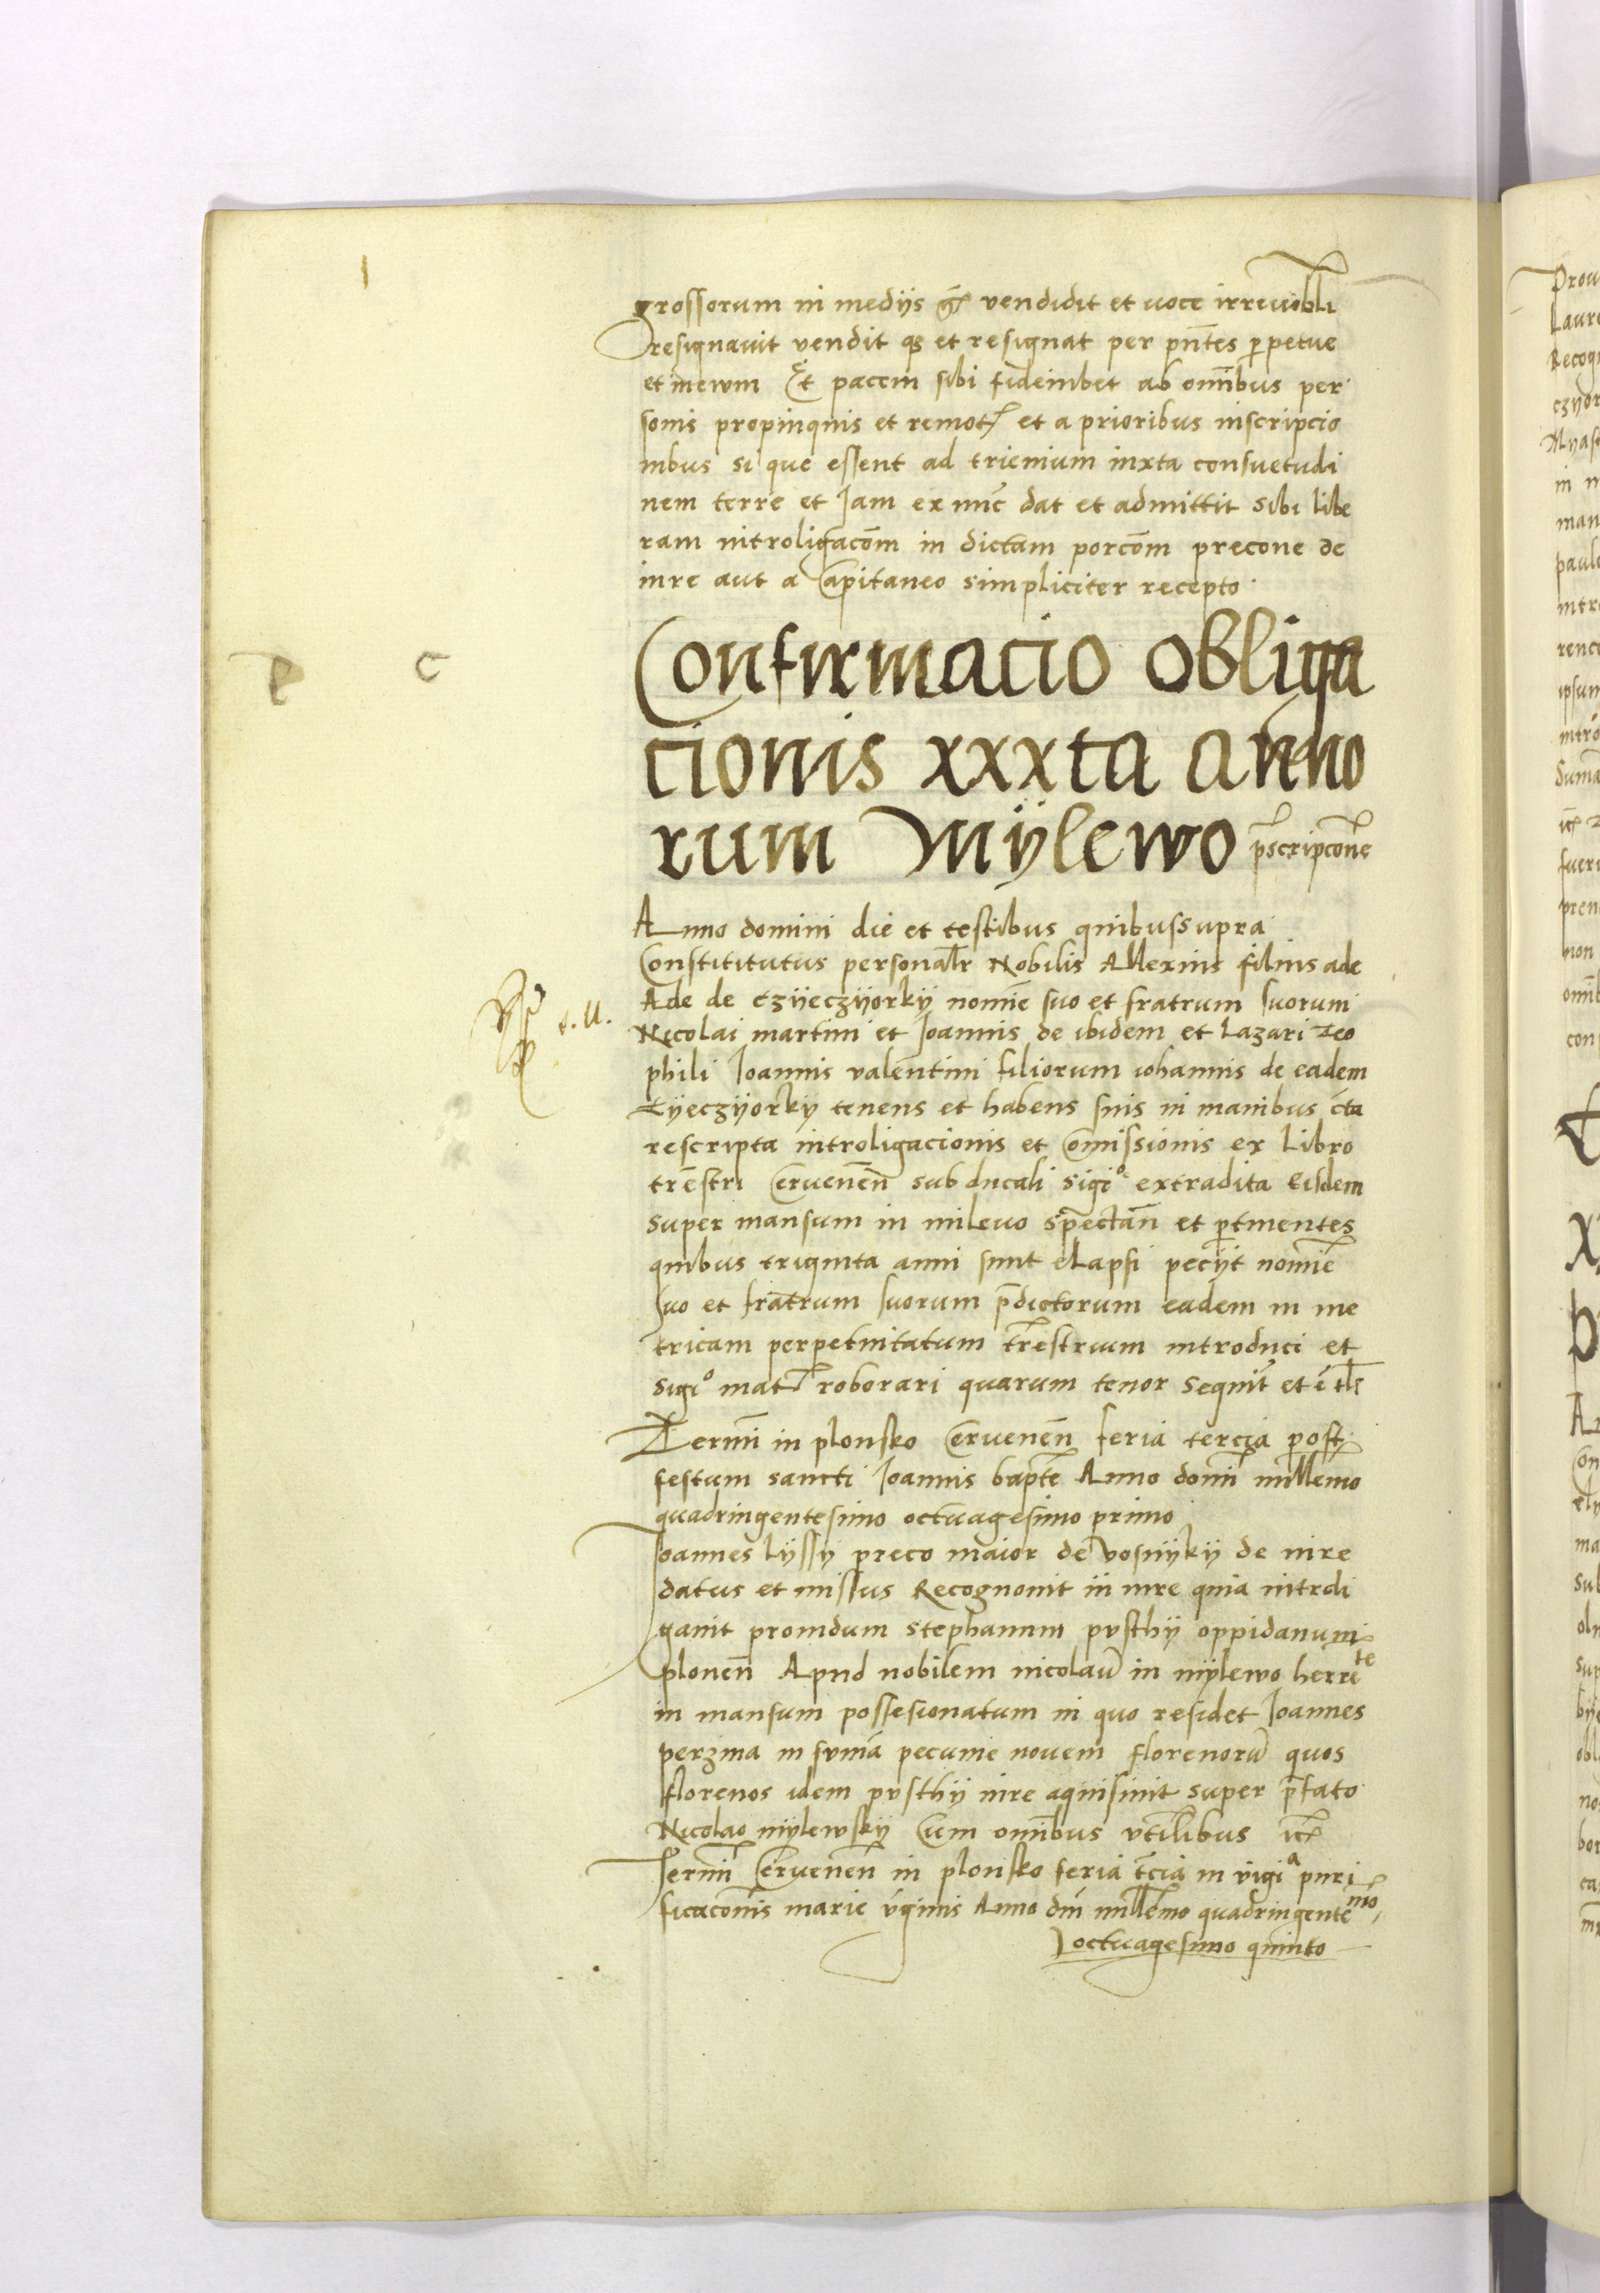 grossorum in medÿs gr̃ vendidit et voce irrevobłi
resignavit vendit qʒ et resignat per pñtes ꝑpetue
et inewm Et pacem sibi fideiubet ab om̃ibus per
sonis propinquis et remot̃ et a prioribus inscripcio
nibus si que essent ad trienium iuxta consuetudi
nem terre et Iam ex nũc dat et admittit sibi libe
ram introligacõm in dictam porcõm precone de
iure aut a Capitaneo simpliciter recepto
Confirmacio obliga
cionis xxxta anno
rum Mÿlewo p̃scripcõne
Anno domini die et testibus quibussupra
Constititutus personałr Nobilis Allexius filius ade
Ade de Czÿeczÿorkÿ nomĩe suo et fratrum suorum
Nicolai martini et Joannis de ibidem et Lazari Teo
phili Joannis valentini filiorum iohannis de eadem
Czÿeczÿorkÿ tenens et habens suis in manibus c̃ta
rescripta introligacionis et Com̃issionis ex Libro
tr̃estri Cervenen̄ sub ducali sigiº extradita Eisdem
super mansum in milevo spectañ et ꝑtinentes
quibus triginta anni sunt elapsi pecÿt nomĩe
suo et fratrum suorum p̃dictorum eadem in me
tricam perpetuitatum tr̃estrium introduci et
sigiº mat̃ roborari quarum tenor sequit̃ et ẽ tł̃s
Termĩ in plonsko Cervenen̄ feria tercia post
festum sancti Joannis bapt̃e Anno domĩ millem̃o
quadringentesimo octuagesimo primo
Joannes Lÿssÿ preco maior de Vosnÿkÿ de iure
datus et missus Recognovit in iure quia introli
gavit providum Stephanum pvsthÿ oppidanum
plonen̄ Apud nobilem nicolaũ in mÿlewo herẽte
in mansum possesionatum in quo residet Joannes
perzina in sum̃a pecunie novem florenorũ quos
florenos idem pvsthÿ iure aquisivit super p̃fato
Nicolao mÿlewskÿ Cum om̃ibus vtilibus ĩt̃
Termĩ Cervenen̄ in plonsko feria t̃cia in vigiª puri
ficacõnis marie v̓ginis Anno dñi millem̃o quadringentemo
octuagesimo quinto